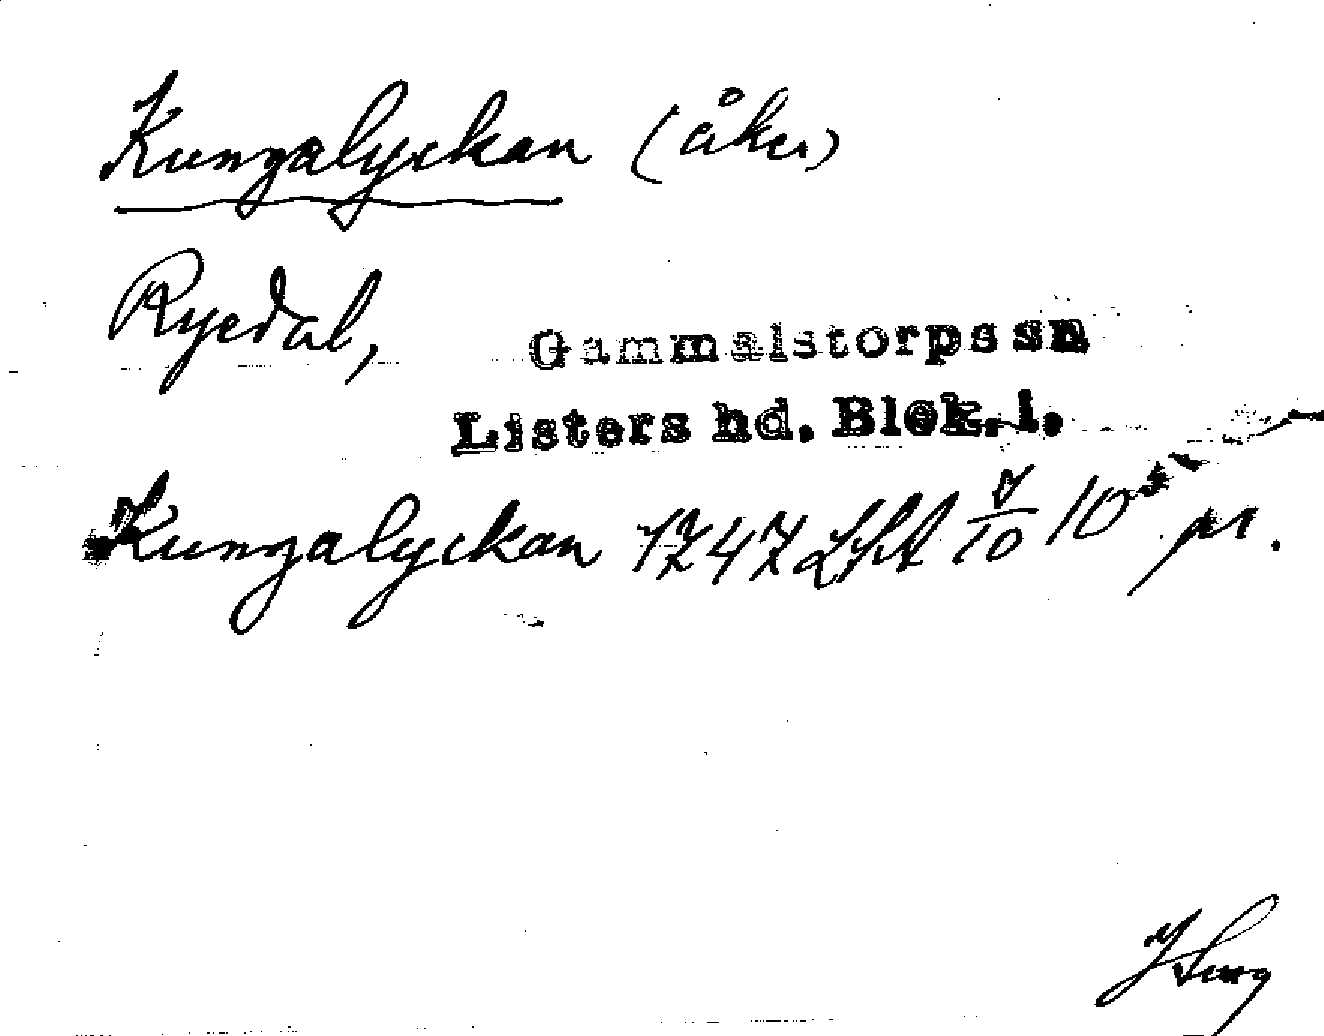 Kungalyckan (åker)
Ryedal,
Gammalstorps sn
Listers hd. Blek. l.
Kungalyckan 1747 LSA 10 pr.